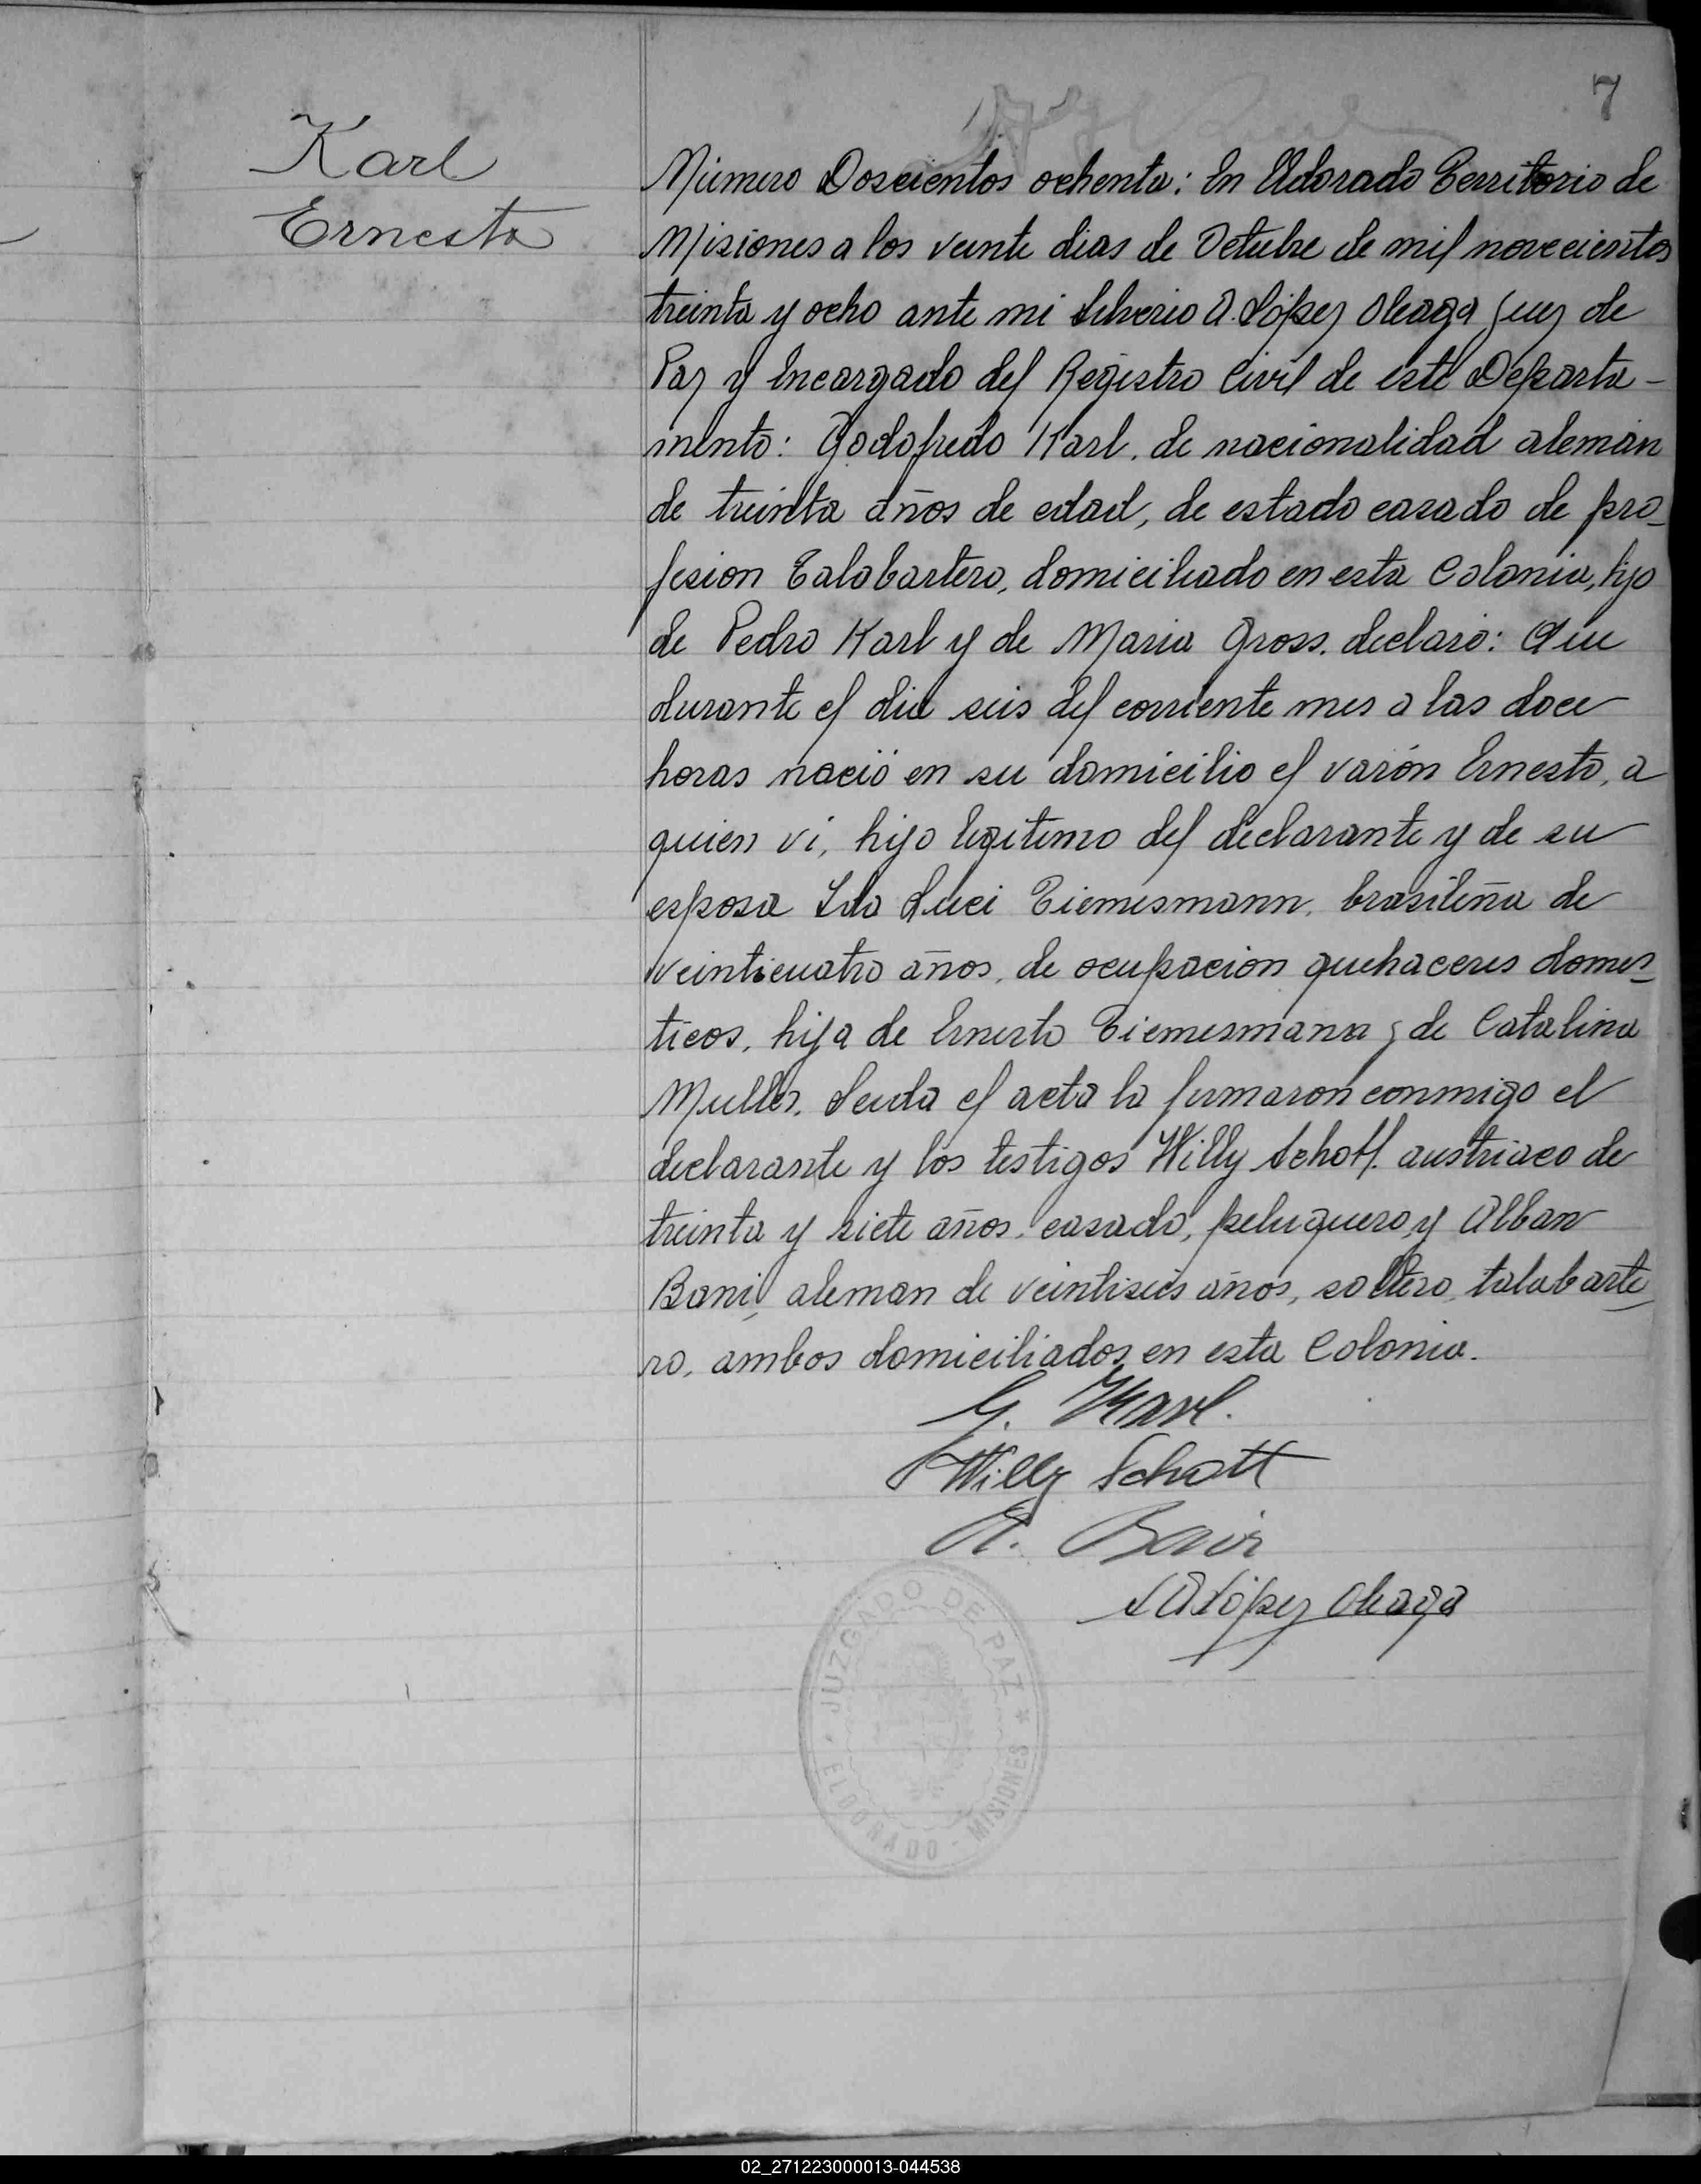 7
Karl
Ernesto
Número Doscientos ochenta: En Eldorado Territorio de
Misiones a los veinte dias de Octubre de mil novecientos
treinta y ocho ante mi Silverio A. López Oleaga Juez de
Paz y Encargado del Registro Civil de este Departa-
mento: Godofredo Karl, de nacionalidad alemán
de treinta años de edad, de estado casado de pro-
fesion Talabartero, domiciliado en esta Colonia, hijo
de Pedro Karl y de Maria Gross. declaró: Que
durante el dia seis del corriente mes a las doce
horas nació en su domicilio el varón Ernesto, a
quien vi, hijo legitimo del declarante y de su
esposa Ida Luci Tiemesmann, brasileña de
veinticuatro años, de ocupacion quehaceres domes-
ticos, hija de Ernesto Tiemesmann y de Catalina
Muller. Leida el acta la firmaron conmigo el
declarante y los testigos Willy Schott. austriaco de
treinta y siete años, casado, peluquero, y Alban
aleman de veintiseis años, soltero, talabarte-
ro, ambos domiciliados en esta Colonia.
G. Karl.
Willy Schott
A.
S A López Oleaga
JUZGADO DE PAZ
ELDORADO - MISIONES
02_271223000013-044538